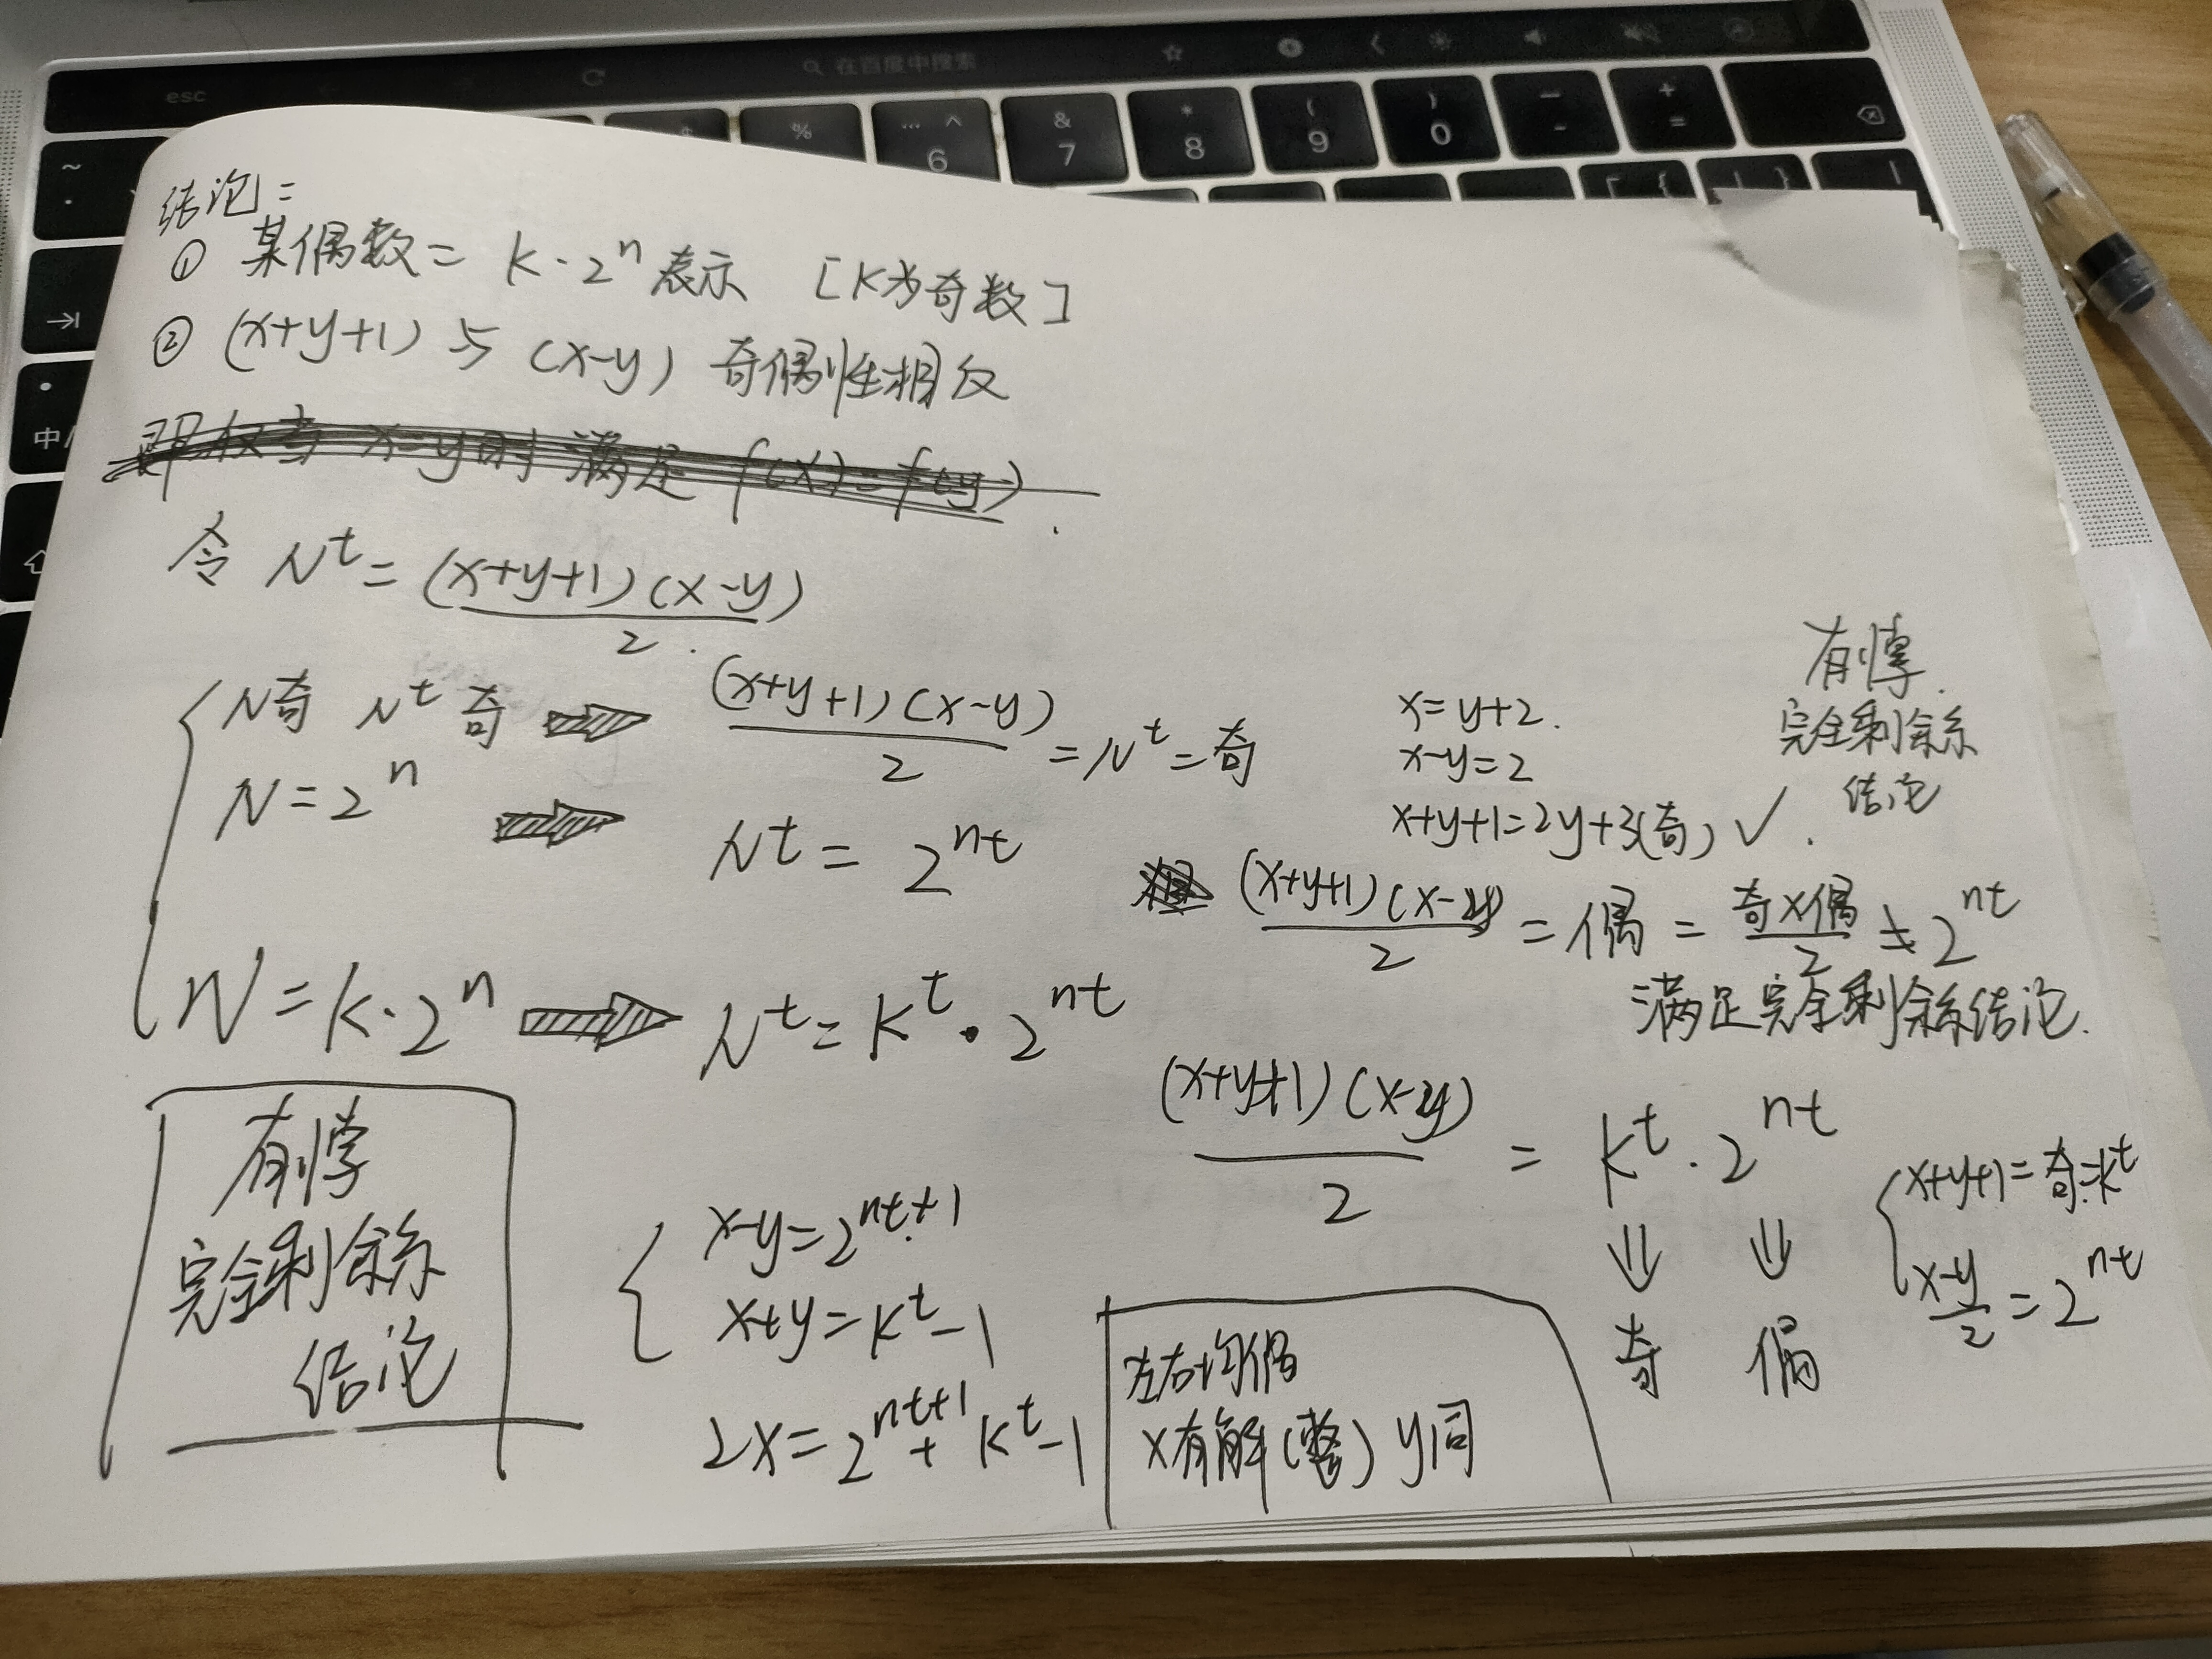 esc
在百度中搜索
% 
… ^
6
& 7
* 8
( 9
) 0
— -
+ =
~ ·
中/
结论:
① 某偶数= k·2^n 表示 [K为奇数]
② (x+y+1) 与 (x-y) 奇偶性相反
即仅当 x=y时 满足 f(x)=f(y)
令 N^t = (x+y+1)(x-y)/2
N奇 N^t 奇 ⇒ (x+y+1)(x-y)/2 = N^t = 奇
x=y+2.
x-y=2
x+y+1=2y+3(奇) ✓.
有悖.
完全剩余系
结论
N=2^n ⇒ N^t = 2^nt
(x+y+1)(x-y)/2 = 偶 = 奇×偶/2 ≠ 2^nt
满足完全剩余系结论.
N=k·2^n ⇒ N^t = K^t · 2^nt
(x+y+1)(x-y)/2 = K^t · 2^nt
⇓ ⇓
奇 偶
x+y+1=奇=k^t
x-y/2 = 2^nt
有悖
完全剩余系
结论
x-y=2^nt+1
x+y=K^t-1
2x=2^nt+1 + K^t-1
左右均偶
x有解(整) y同